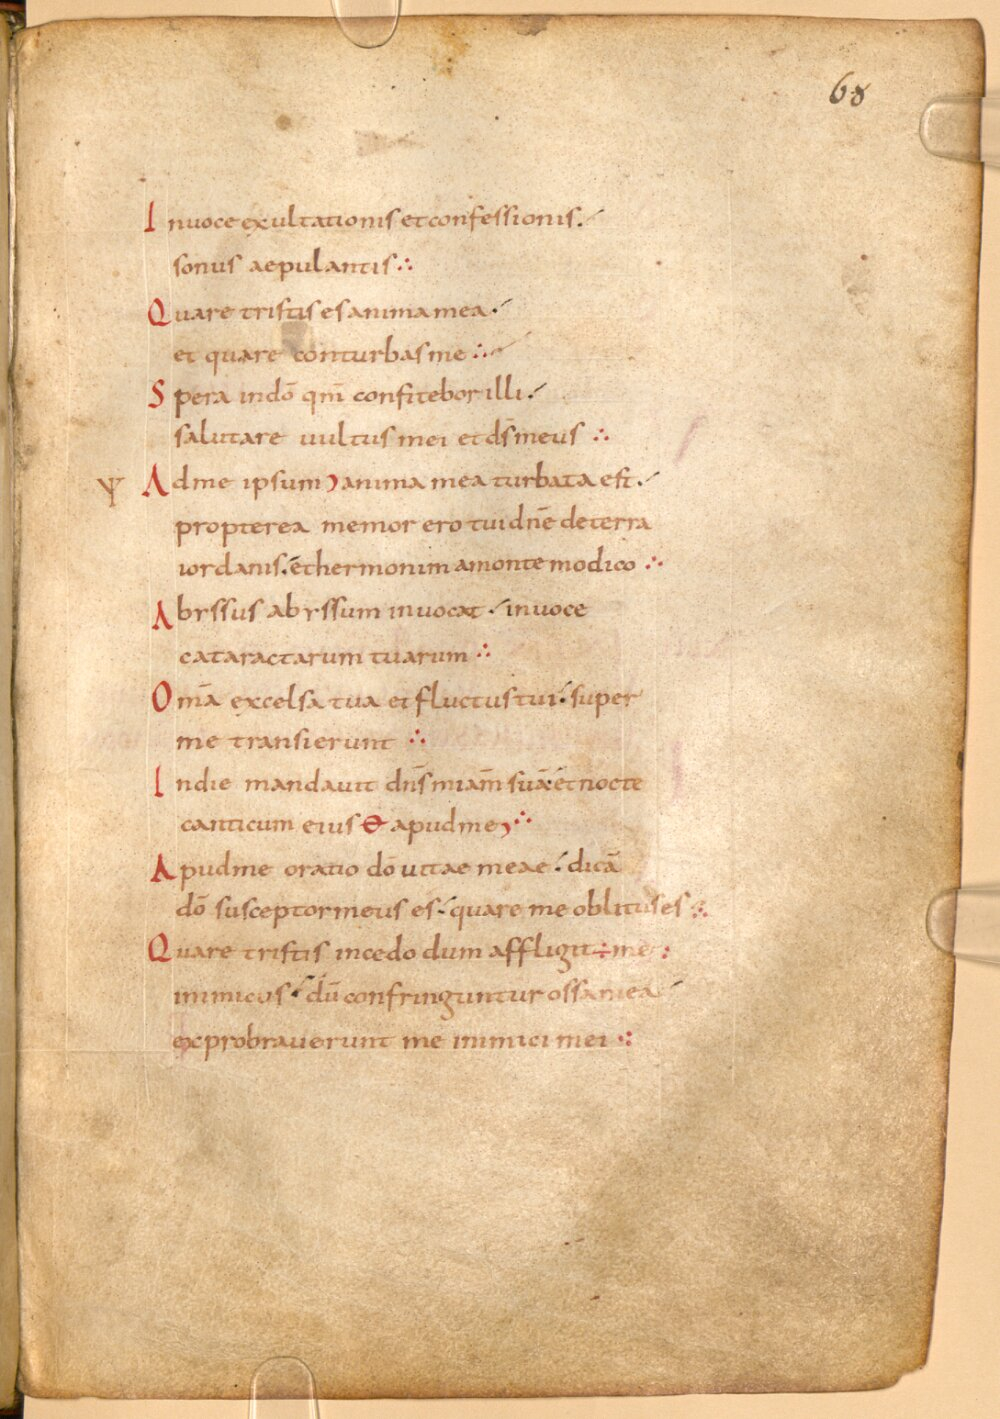 68
In uoce exultationis et confessionis.
sonus aepulantis ∴
Quare tristis es anima mea.
et quare conturbas me ∴
Spera in dō qm̄ confitebor illi.
salutare uultus mei et ds̄ meus ∴
Ψ Ad me ipsum anima mea turbata est.
propterea memor ero tui dn̄e de terra
iordanis. et hermoniim a monte modico ∴
Abyssus abyssum inuocat. in uoce
cataractarum tuarum ∴
Omā excelsa tua et fluctus tui. super
me transierunt ∴
In die mandauit dn̄s miam̄ suā. et nocte
canticum eius apud me ∴
Apud me oratio dō uitae meae. dicā
dō susceptor meus es. quare me oblitus es ∴
Quare tristis incedo dum affligit me
inimicus. dū confringuntur ossa mea
exprobrauerunt me inimici mei ∴